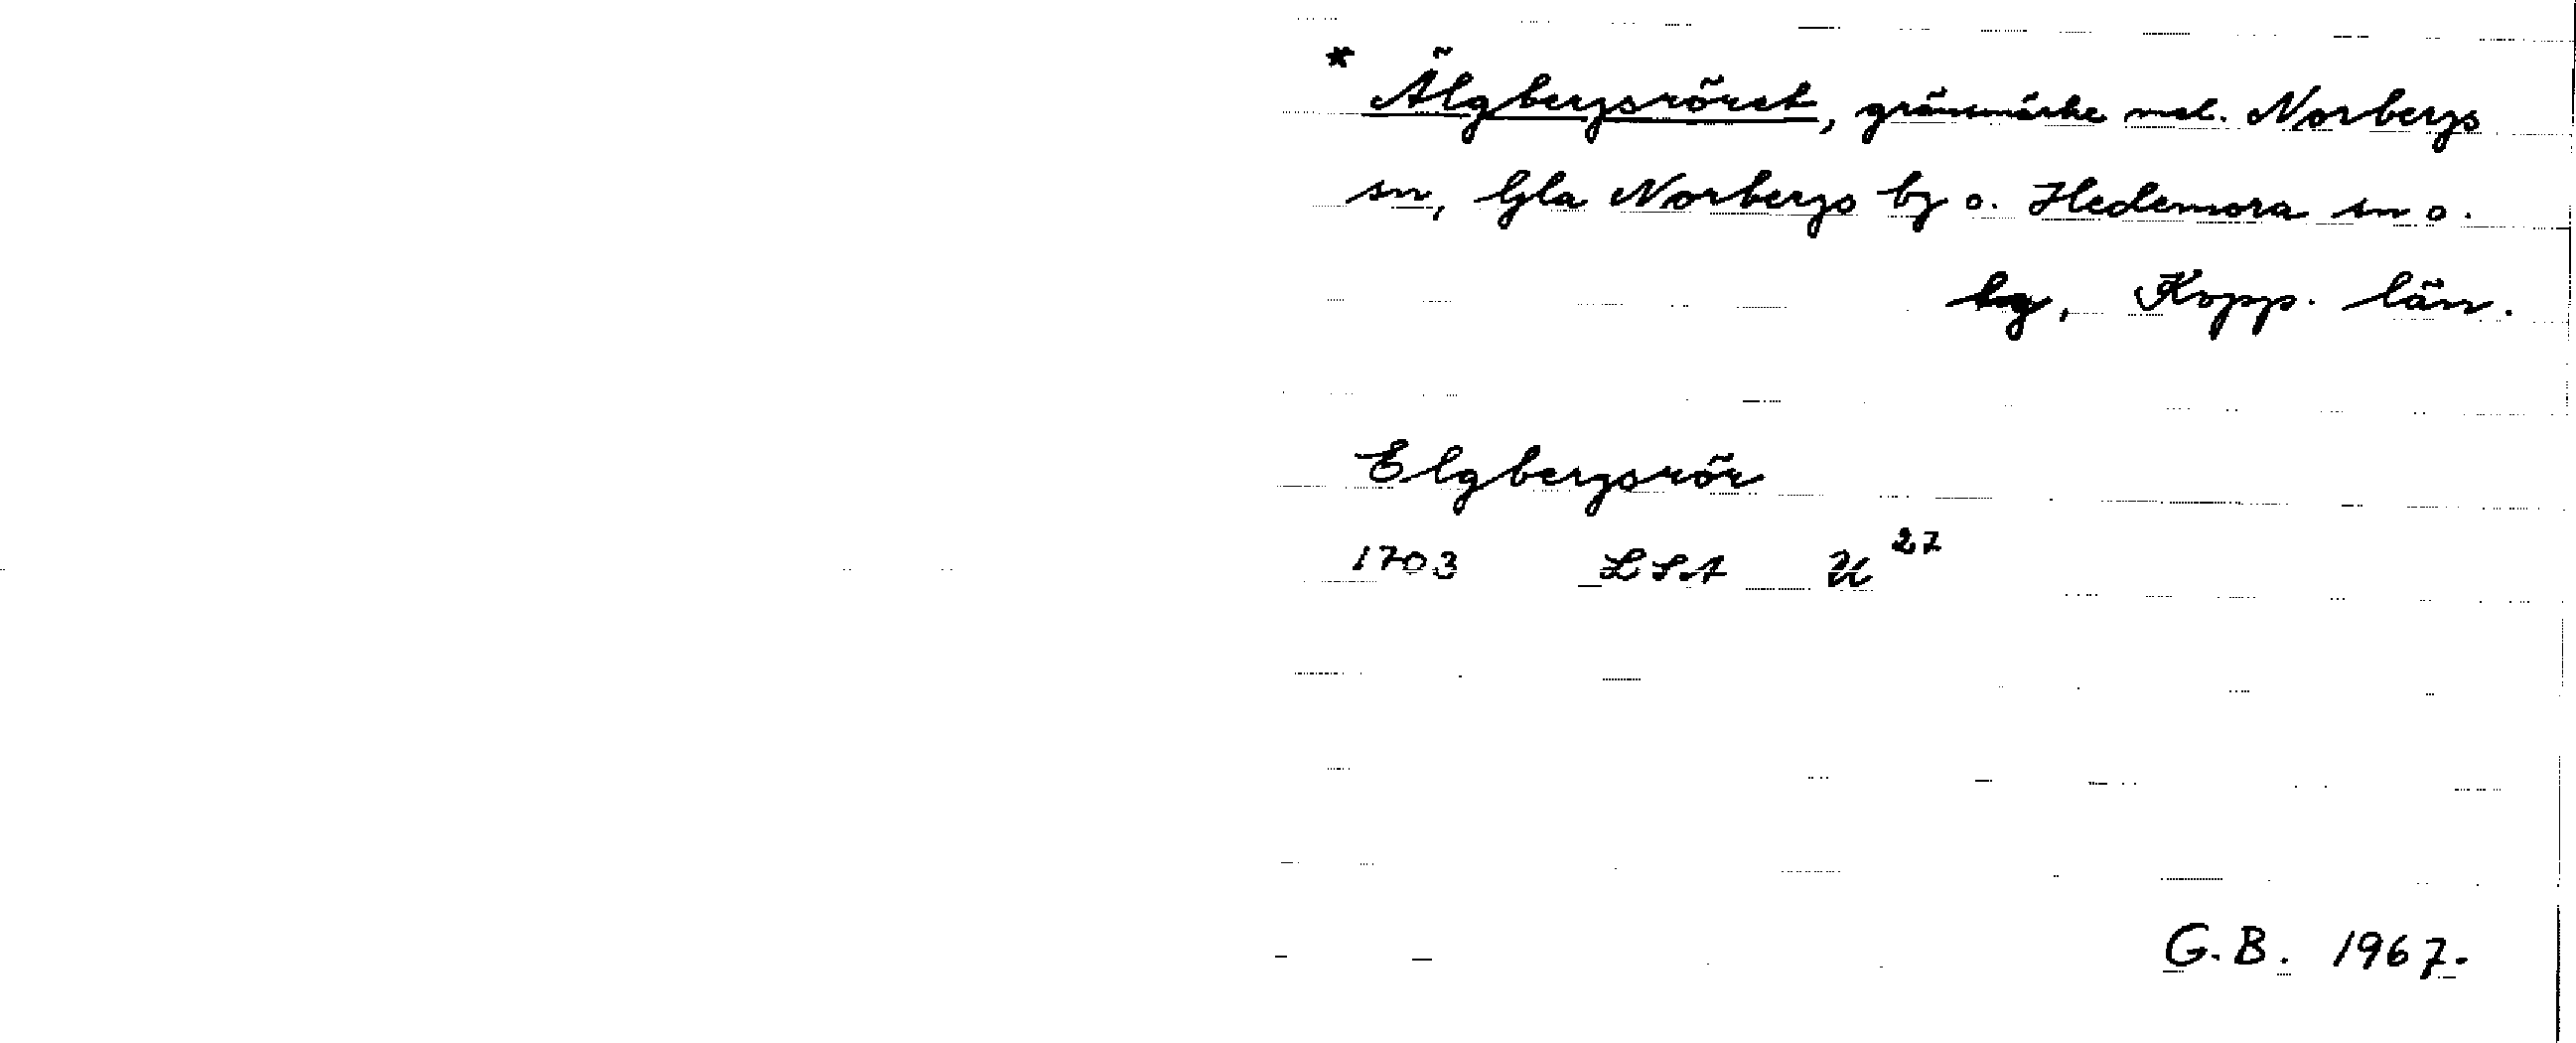 * Älgbergsröret, gränsmärke mel. Norbergs
sn, Gla Norbergs bg o. Hedemora sn o.
bg, Kopp. län.
Elgbergsrör
1703 LSA U 27
G.B. 1967.